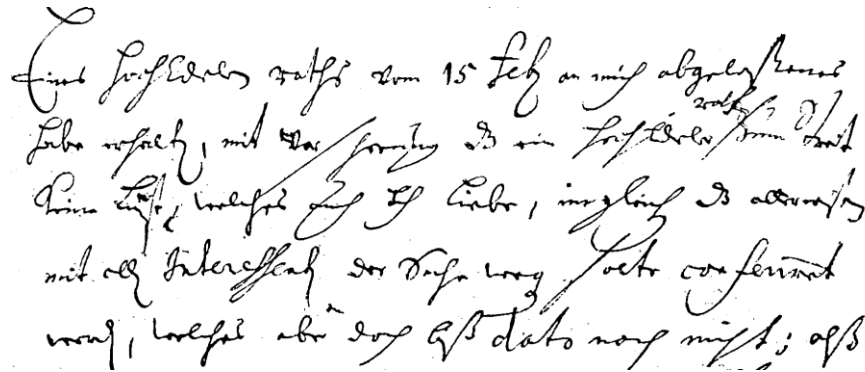 Eines HochEdelen raths vom 15 Feb an mich abgelaßenes
habe erhalten, mit Versicherung dß ein HochEdeler rath zum Streit
keine Lust, welches auch Ich liebe, imgleich dß
mit all Interessent der Sache weg solte conferiret
werd, welches aber doch biß dato noch nicht; alß